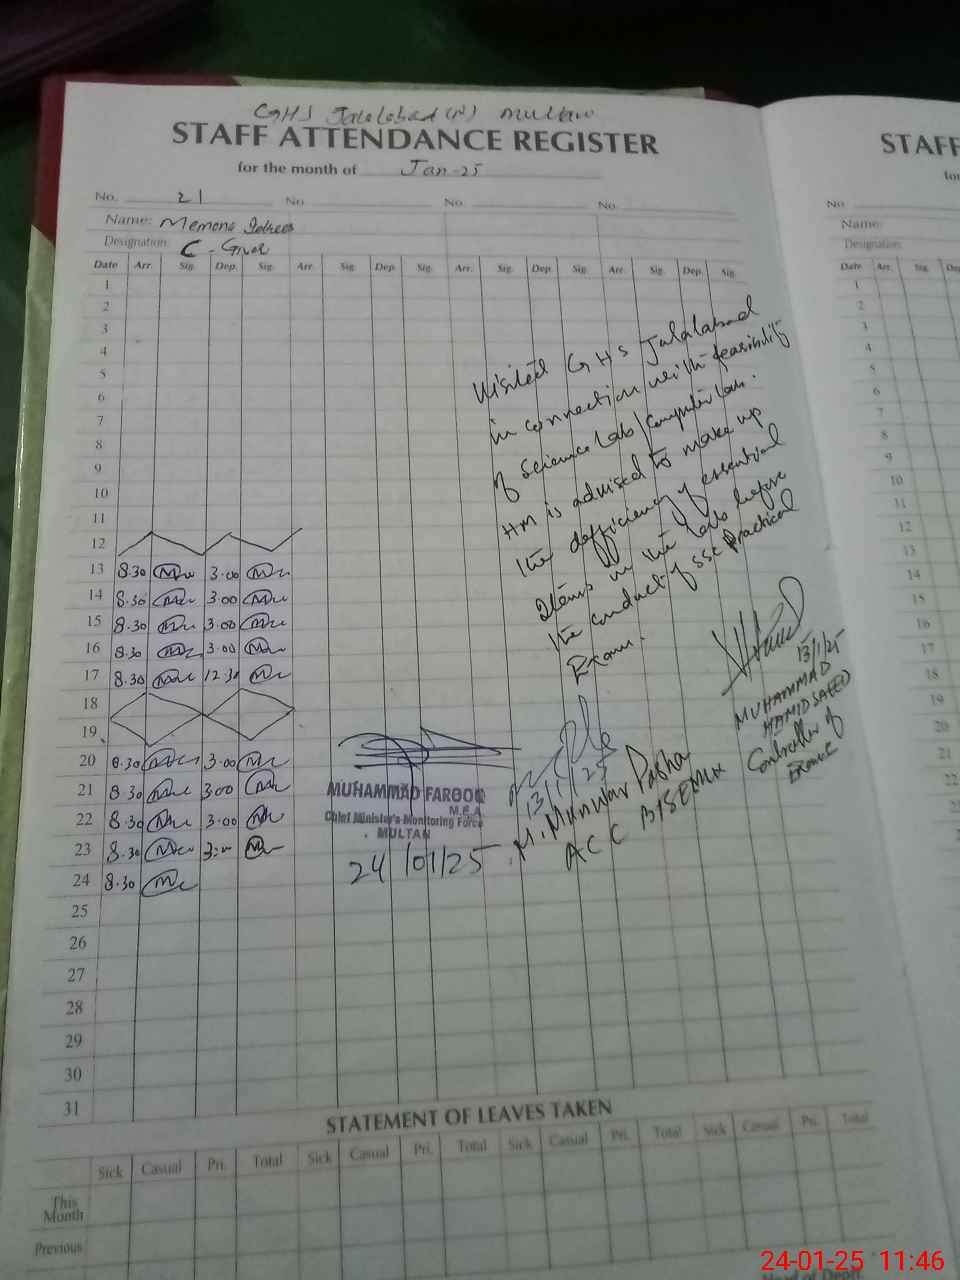 GHS Jalalabad (N) Multan
STAFF ATTENDANCE REGISTER
for the month of Jan-25
No. 21 No. No. No.
Name: Memona
Designation: C -
Date Arr. Sig. Dep. Sig. Arr. Sig. Dep. Sig. Arr. Sig. Dep. Sig. Arr. Sig. Dep. Sig.
1
2
3
4
5
6
7
8
9
10
11
12
13 8.30 3.00
14 8.30 3.00
15 8.30 3.00
16 8.30 3.00
17 8.30 12.30
18
19
20 8.30 3.00
21 8.30 3.00
22 8.30 3.00
23 8.30 3:00
24 8.30
25
26
27
28
29
30
31
Visited GHS Jalalabad
in connection with feasibility
of Science Lab/Computer Lab.
HM is advised to make up
the defficiency of essential
Items in the labs before
the conduct of SSC Practical
Exam.
13/1/25
MUHAMMAD
HAMID SAEED
Controller of
13/1/25
M. Munwar Pasha
ACC BISE
MUHAMMAD FAROOQ
M.E.A
Chief Minister's Monitoring Force
MULTAN
24/01/25
STATEMENT OF LEAVES TAKEN
Sick Casual Pri. Total Sick Casual Pri. Total Sick Casual Pri. Total Sick Casual Pri. Total
This
Month
Previous
STAFF
No.
Name:
Designation:
Date Arr. Sig.
1
2
3
4
5
6
7
8
9
10
11
12
13
14
15
16
17
18
19
20
21
22
23
24-01-25 11:46